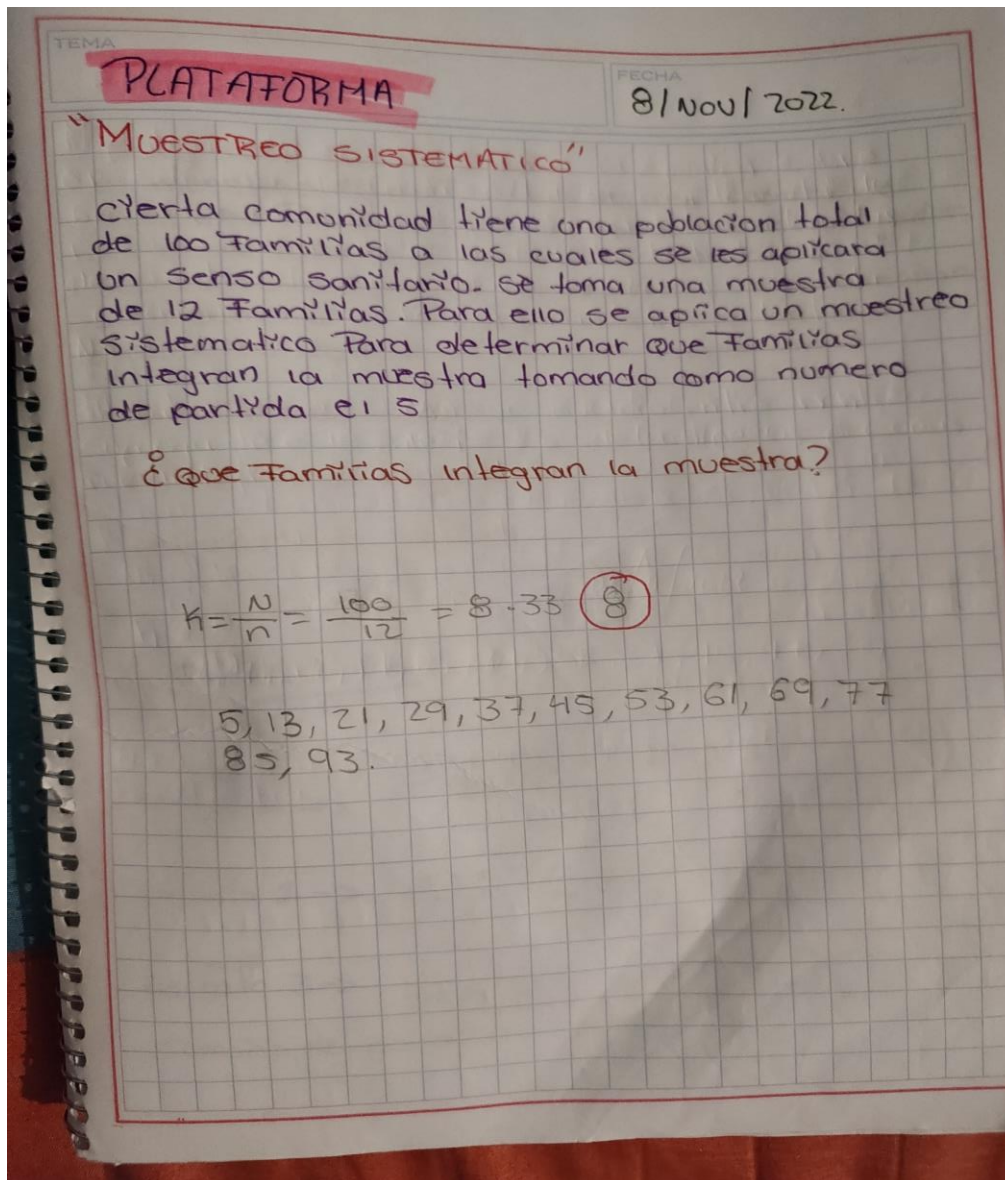 TEMA
PLATAFORMA
FECHA
8/NOV/2022.
"MUESTREO SISTEMATICO"
cierta comunidad tiene una poblacion total
de 100 Familias a las cuales se les aplicara
un senso sanitario. se toma una muestra
de 12 Familias. Para ello se aplica un muestreo
sistematico Para determinar que Familias
integran la muestra tomando como numero
de partida el 5
¿Que Familias integran la muestra?
K = N/n = 100/12 = 8.33 8
5, 13, 21, 29, 37, 45, 53, 61, 69, 77
85, 93.